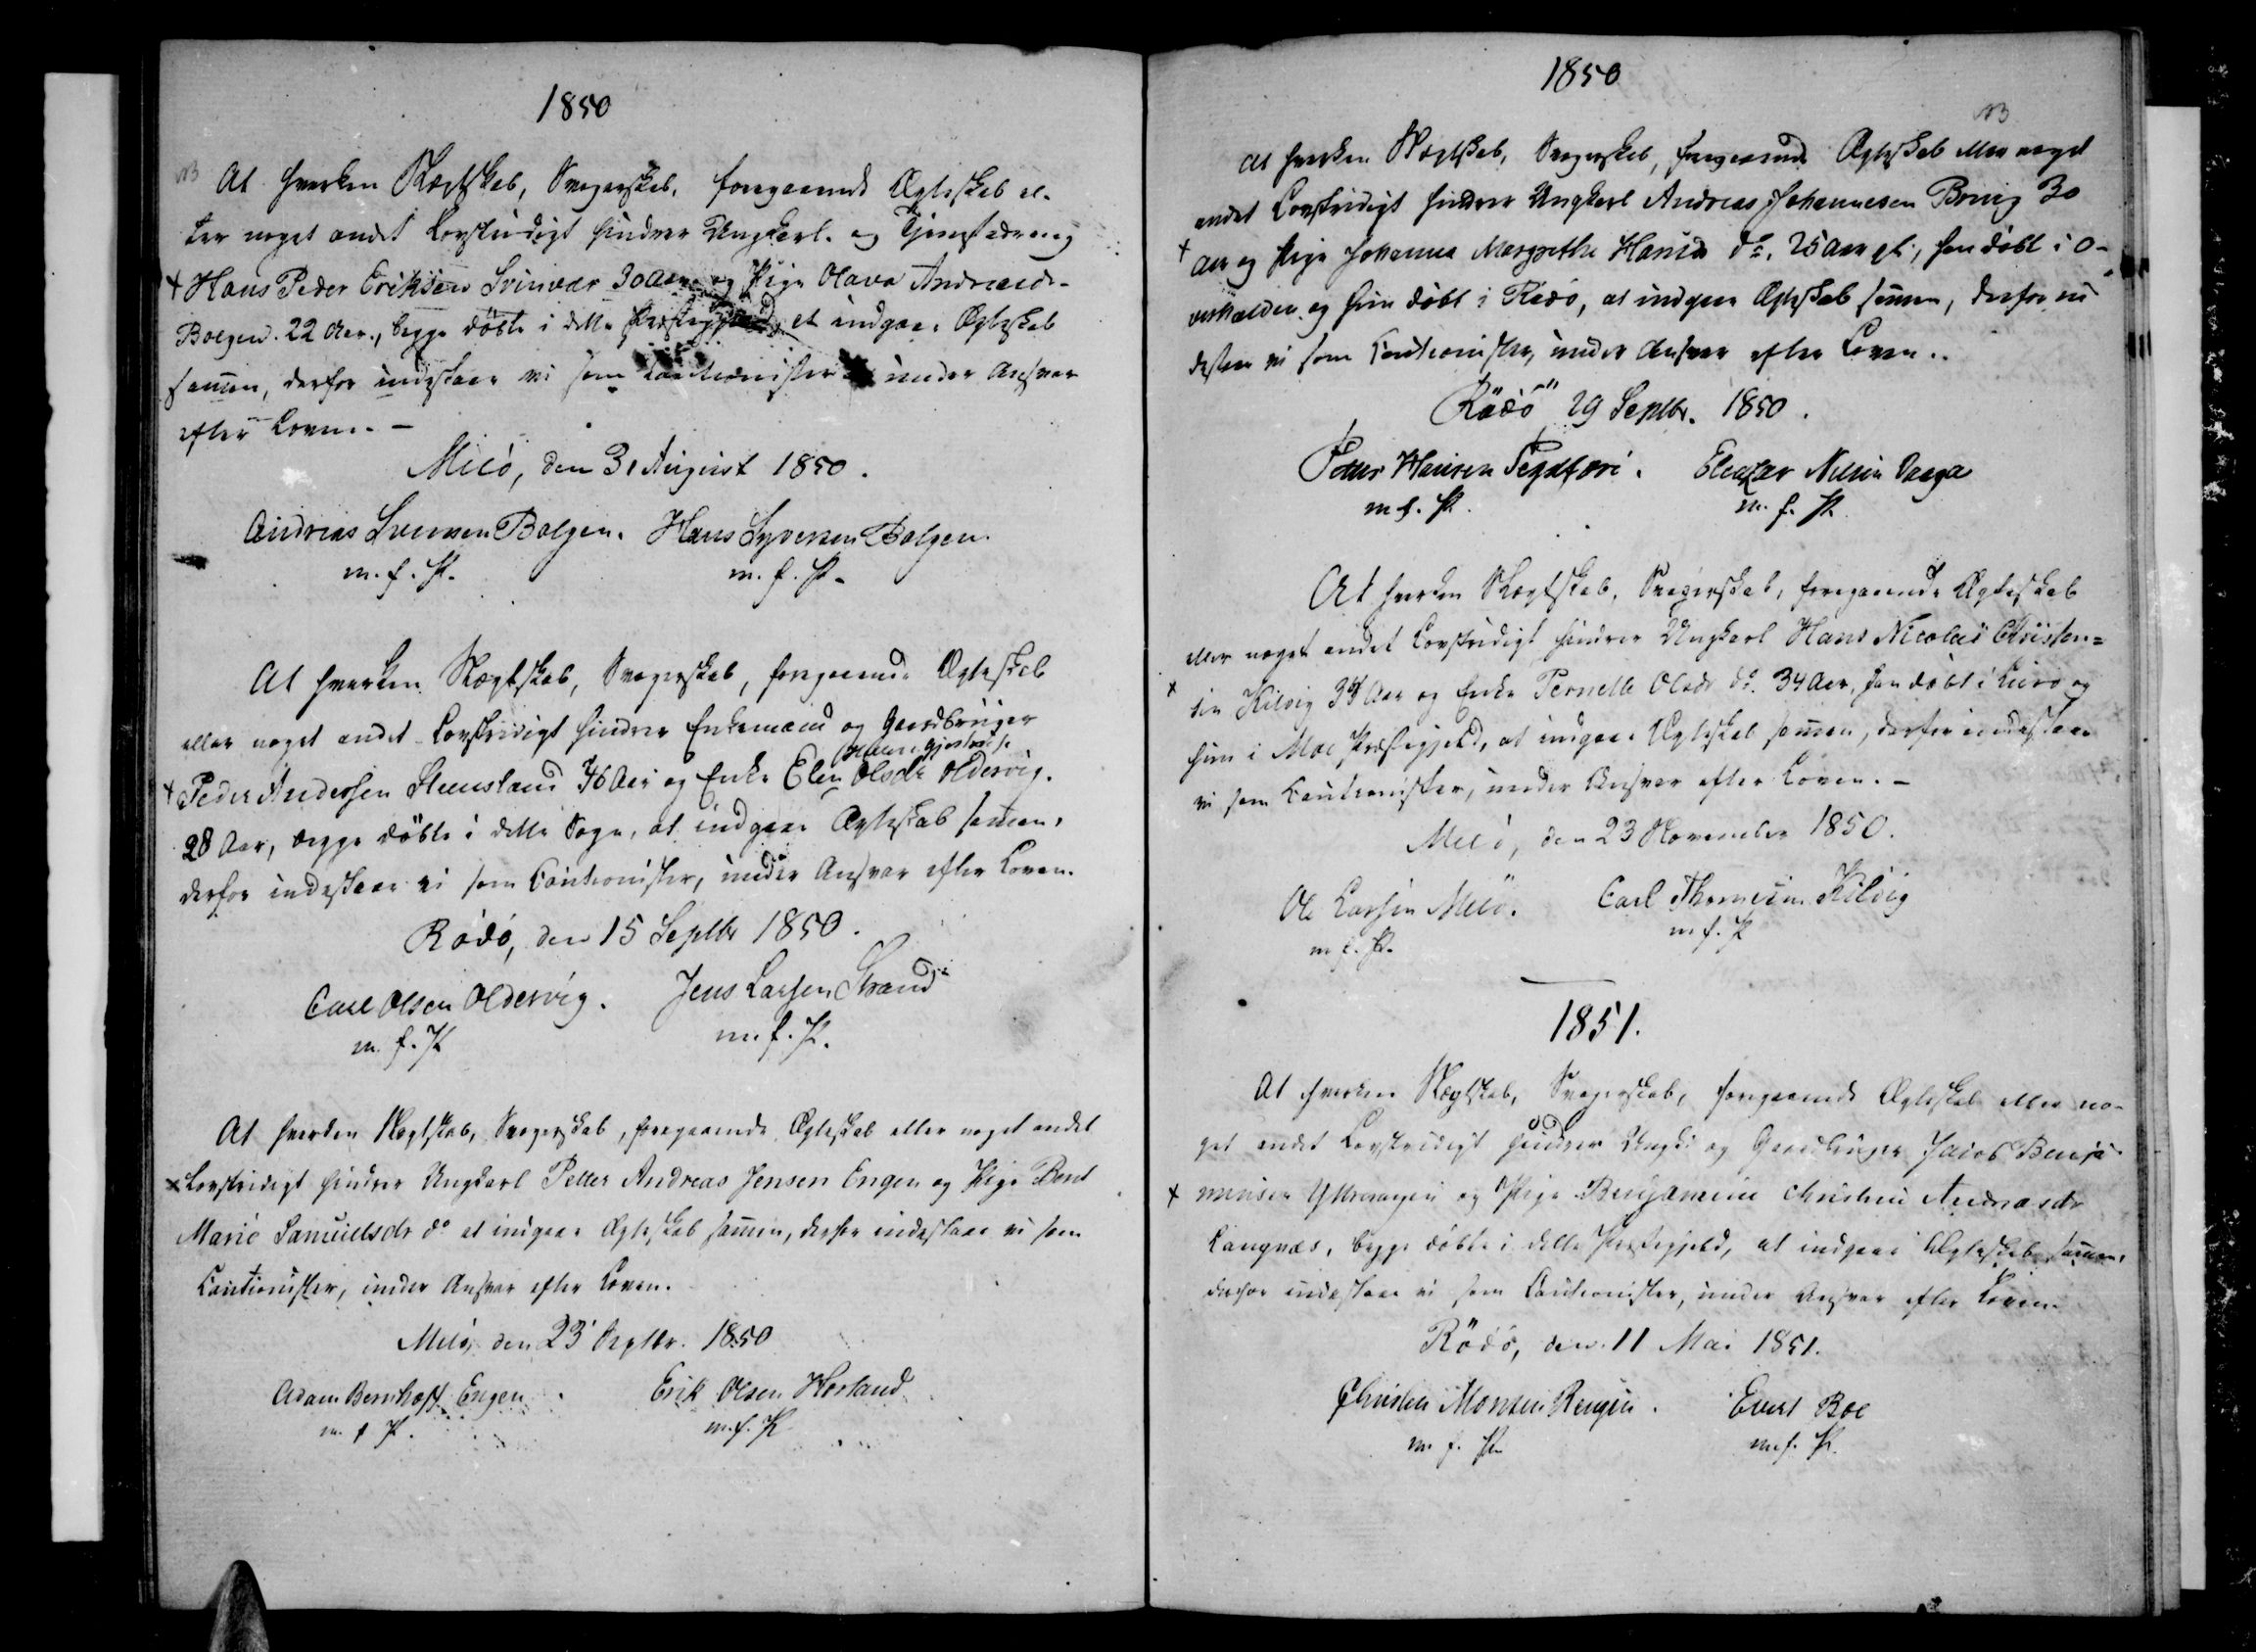 1850
NB At hverken Slægtskab, Svogerskab, foregaaende Ægteskab el-
ler noget andet Lovstridigt hindrer Ungkarl og Tjenestedreng
+ Hans Peder Eriksen Svinvær 30 Aar og Pige Olava Andreasdr
Bolgen 22 Aar, begge döbte i dette Præstegjæld, at indgaae Ægteskab
samen, derfor indestaae vi som Cautionister under Ansvar
efter Loven. -
Melö, den 31 August 1850.
Andreas Svensen Bolgen. Hans Syversen Bolgen.
m. f. P. m. f. P.
At hverken Slægtskab, Svogerskab, foregaaende Ægteskab
eller noget andet Lovstridigt hindrer Enkemand og Gaardbruger
+ Peder Andersen Steensland 46 Aar og Enke Elen Olsdr Oldervig.
28 Aar, begge döbte i dette Sogn, at indgaae Ægteskab samen,
derfor indestaae vi som Cautionister, under Ansvar efter Loven.
Rödö, den 15 Septbr 1850.
Carl Olsen Oldervig. Jens Larsen Strand
m. f. P. m. f. P.
At hverken Slægtskab, Svogerskab, foregaaende Ægteskab eller noget andet
x Lovstridigt hindrer Ungkarl Petter Andreas Jensen Engen og Pige Bent
Marie Samuelsdr do at indgaae Ægteskab samen, derfor indestaae vi som
Cautionister, under Ansvar efter Loven.
Melö, den 23 Septbr. 1850
Adam Bernhoft Engen. Erik Olsen Horland
m. f. P. m. f. P.
1850
NB
At hverken Slægtskab, Svogerskab, foregaaende Ægteskab eller noget
andet Lovstridigt hindrer Ungkarl Andreas Johannesen Bring 30
+ Aar og Pige Johanna Margrethe Hansd do. 25 Aar gl., han döbt i O-
verhalden og hun döbt i Rödö, at indgaae Ægteskab samen, derfor in-
destaae vi som Cautionister, under Ansvar efter Loven.
Rödö 29 Septbr. 1850.
Peter Hansen. Eleazar Nilsen Vaaga
m. f. P. m. f. P.
At hverken Slægtskab, Svogerskab, foregaaende Ægteskab
eller noget andet Lovstridigt hindrer Ungkarl Hans Nicolai Christen=
x sen Kilvig 34 Aar og Enke Pernelle Olsdr do. 34 Aar, han döbt i Lurö og
hun i Moe Præstegjeld, at indgaae Ægteskab samen, derfor indestaae
vi som Cautionister, under Ansvar efter Loven. -
Melö, den 23 November 1850.
Ole Larsen Melö. Carl Thomesen Kilvig
m. f. P. m. f. P.
1851.
At hverken Slægtskab, Svogerskab, foregaaende Ægteskab eller no-
get andet Lovstridigt hindrer Ungk. og Gaardbruger Jacob Benja-
+ minsen og Pige Benjamine Christine Andreasdr
Langnæs, begge döbte i dette Præstegjeld, at indgaae Ægteskab samen,
derfor indestaae vi som Cautionister, under Ansvar efter Loven.
Rödö, den 11 Mai 1851.
Christen Monsen Rengen. Evert Boe
m. f. P. m. f. P.